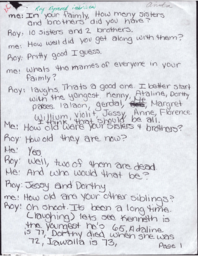 Roy
me: In your family. How many sisters
and brothers did you have?
Roy: 10 sisters and 2 brothers.
me: How well did you get along with them?
Roy: Pretty good I guess.
me: Whats the names of everyone in your
family?
Roy: laughs. Thats a good one. I better start
with the youngest Kenny, Adaline, Dorthy
passes Margret
William, Jessy, Anne, Florence
I think that should be all.
me: How old were your sisters & brothers?
Roy: How old they are now?
Me: Yes
Roy: Well, two of them are dead.
Me: And who would that be?
Roy: Jessy and Dorthy
Me: How old are your other siblings?
Roy: Oh shoot. It's been a long time.
(laughing) lets see Kenneth is
the youngest he's 65, Adaline
is 71, Dorthy died when she was
72, is 73,
Page 1